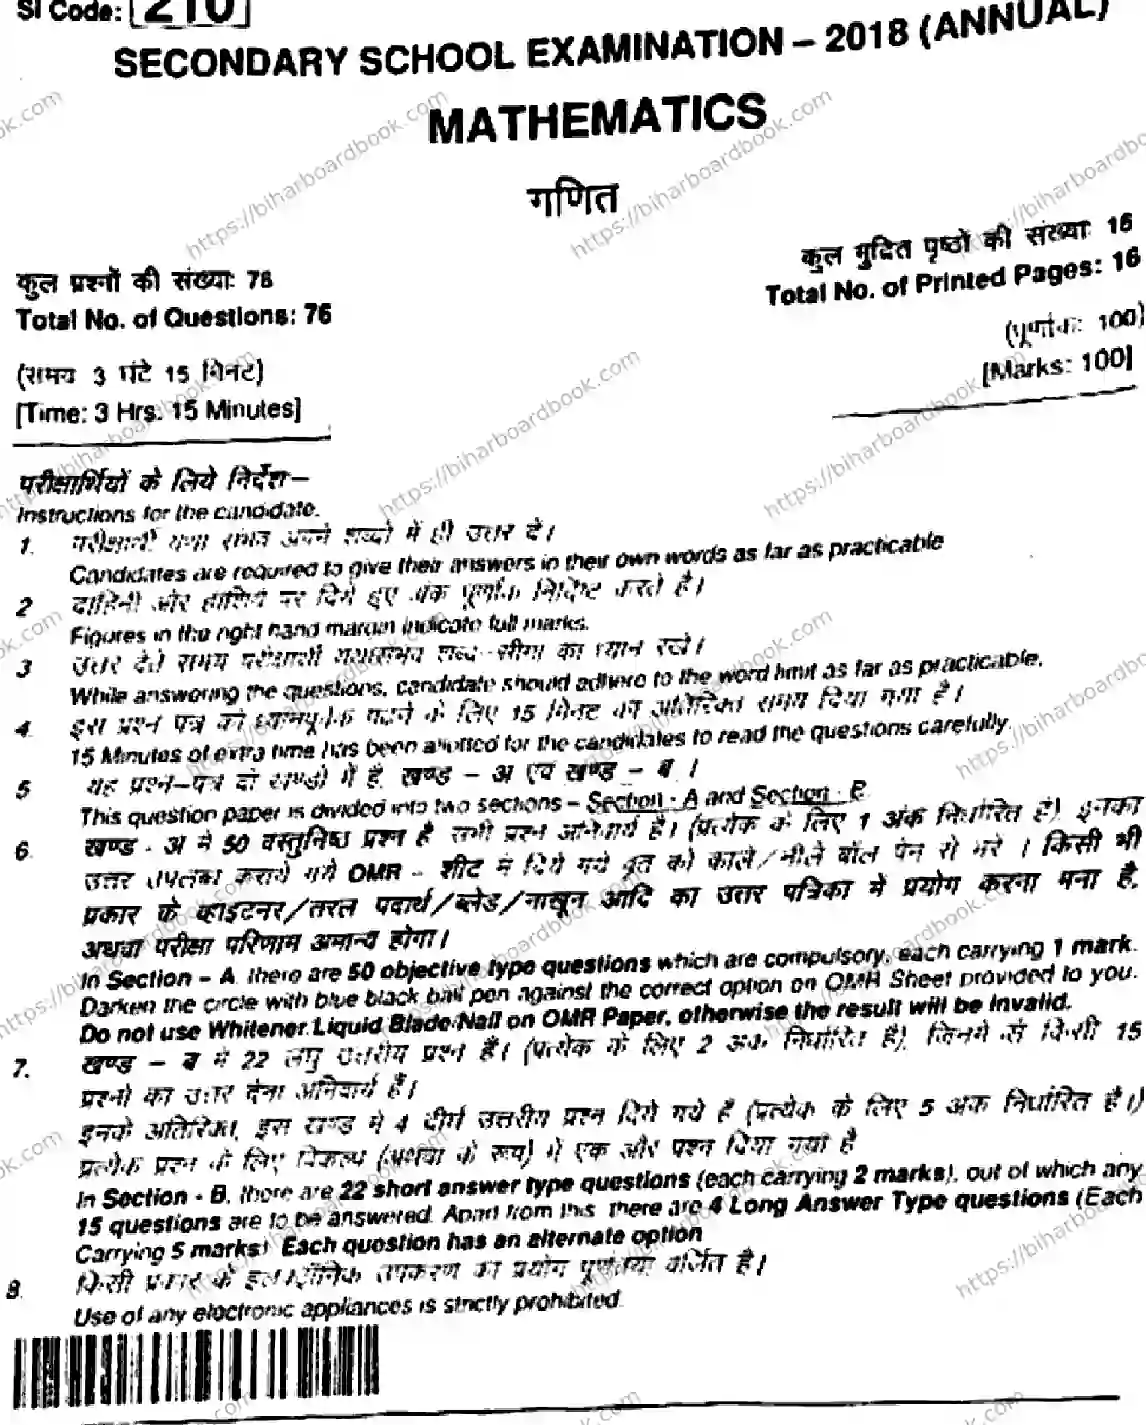 SI Code: 210
SECONDARY SCHOOL EXAMINATION – 2018 (ANNUAL)
MATHEMATICS
गणित
कुल प्रश्नों की संख्याः 76
Total No. of Questions: 76
कुल मुद्रित पृष्ठों की संख्याः 16
Total No. of Printed Pages: 16
(समय 3 घंटे 15 मिनट)
[Time: 3 Hrs. 15 Minutes]
(पूर्णांकः 100)
[Marks: 100]
परीक्षार्थियों के लिये निर्देश–
Instructions for the candidate.
1. परीक्षार्थी यथा संभव अपने शब्दों में ही उत्तर दें।
Candidates are required to give their answers in their own words as far as practicable
2 दाहिनी ओर हाशिये पर दिये हुए अंक पूर्णांक निर्दिष्ट करते है।
Figures in the right hand margin indicate full marks.
3 उत्तर देते समय परीक्षार्थी यथासंभव शब्द-सीमा का ध्यान रखें।
While answering the questions, candidate should adhere to the word limit as far as practicable.
4 इस प्रश्न पत्र को ध्यानपूर्वक पढ़ने के लिए 15 मिनट का अतिरिक्त समय दिया गया है।
15 Minutes of extra time has been allotted for the candidates to read the questions carefully.
5 यह प्रश्न-पत्र दो खण्डों में है, खण्ड - अ एवं खण्ड - ब ।
This question paper is divided into two sections – Section - A and Section - B
6. खण्ड - अ मे 50 वस्तुनिष्ठ प्रश्न है सभी प्रश्न अनिवार्य है। (प्रत्येक के लिए 1 अंक निर्धारित है), इनका
उत्तर उपलब्ध कराये गये OMR - शीट में दिये गये वृत को काले/नीले बॉल पेन से भरें । किसी भी
प्रकार के व्हाइटनर/तरल पदार्थ/ब्लेड/नाखून आदि का उत्तर पत्रिका मे प्रयोग करना मना है,
अथवा परीक्षा परिणाम अमान्य होगा।
In Section – A, there are 50 objective type questions which are compulsory, each carrying 1 mark.
Darken the circle with blue black ball pen against the correct option on OMR Sheet provided to you.
Do not use Whitener/Liquid/Blade/Nail on OMR Paper, otherwise the result will be invalid.
7. खण्ड – ब में 22 लघु उत्तरीय प्रश्न हैं। (प्रत्येक के लिए 2 अंक निर्धारित है), जिनमे से किसी 15
प्रश्नो का उत्तर देना अनिवार्य है।
इनके अतिरिक्त, इस खण्ड मे 4 दीर्घ उत्तरीय प्रश्न दिये गये हैं (प्रत्येक के लिए 5 अंक निर्धारित है।)
प्रत्येक प्रश्न के लिए विकल्प (अथवा के रूप) में एक और प्रश्न दिया गया है
In Section - B, there are 22 short answer type questions (each carrying 2 marks), out of which any
15 questions are to be answered. Apart from this, there are 4 Long Answer Type questions (Each
Carrying 5 marks). Each question has an alternate option
8. किसी प्रकार के इलेक्ट्रॉनिक उपकरण का प्रयोग पूर्णतया वर्जित है।
Use of any electronic appliances is strictly prohibited.